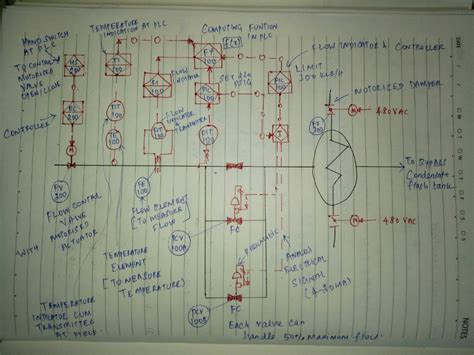 HANDSWITCH
AT PLC
TO CONTROL
MOTORIZED
VALVE
OPEN/CLOSE
CONTROLLER
TEMPERATURE
INDICATION AT PLC
COMPUTING FUNTION
IN PLC
f(x)
FLOW INDICATOR & CONTROLLER
LIMIT
FLOW
INDICATOR
SET
PSIG
FLOW
INDICATOR
TRANSMITTER
MOTORIZED DAMPER
480 VAC
480 VAC
TO BYPASS
Condensate
flash tank
HS
100
TI
100
FI
100
FY
100
TIT
100
TE
100
FIT
100
PIT
100
FV
100
FE
100
M
M
M
FC
FC
WITH
FLOW CONTROL
VALVE
MOTORISED
ACTUATOR
FLOW ELEMENT
[TO MEASURE
FLOW]
TEMPERATURE
ELEMENT
[TO MEASURE
TEMPERATURE]
PCV
100A
PCV
100B
PNEUMATIC
ANALOG
ELECTRICAL
SIGNAL
(4-20MA)
TEMPERATURE
INDICATOR CUM
TRANSMITTER
AT FIELD
Each valve can
handle 50% maximum flow
DATE
NOTES